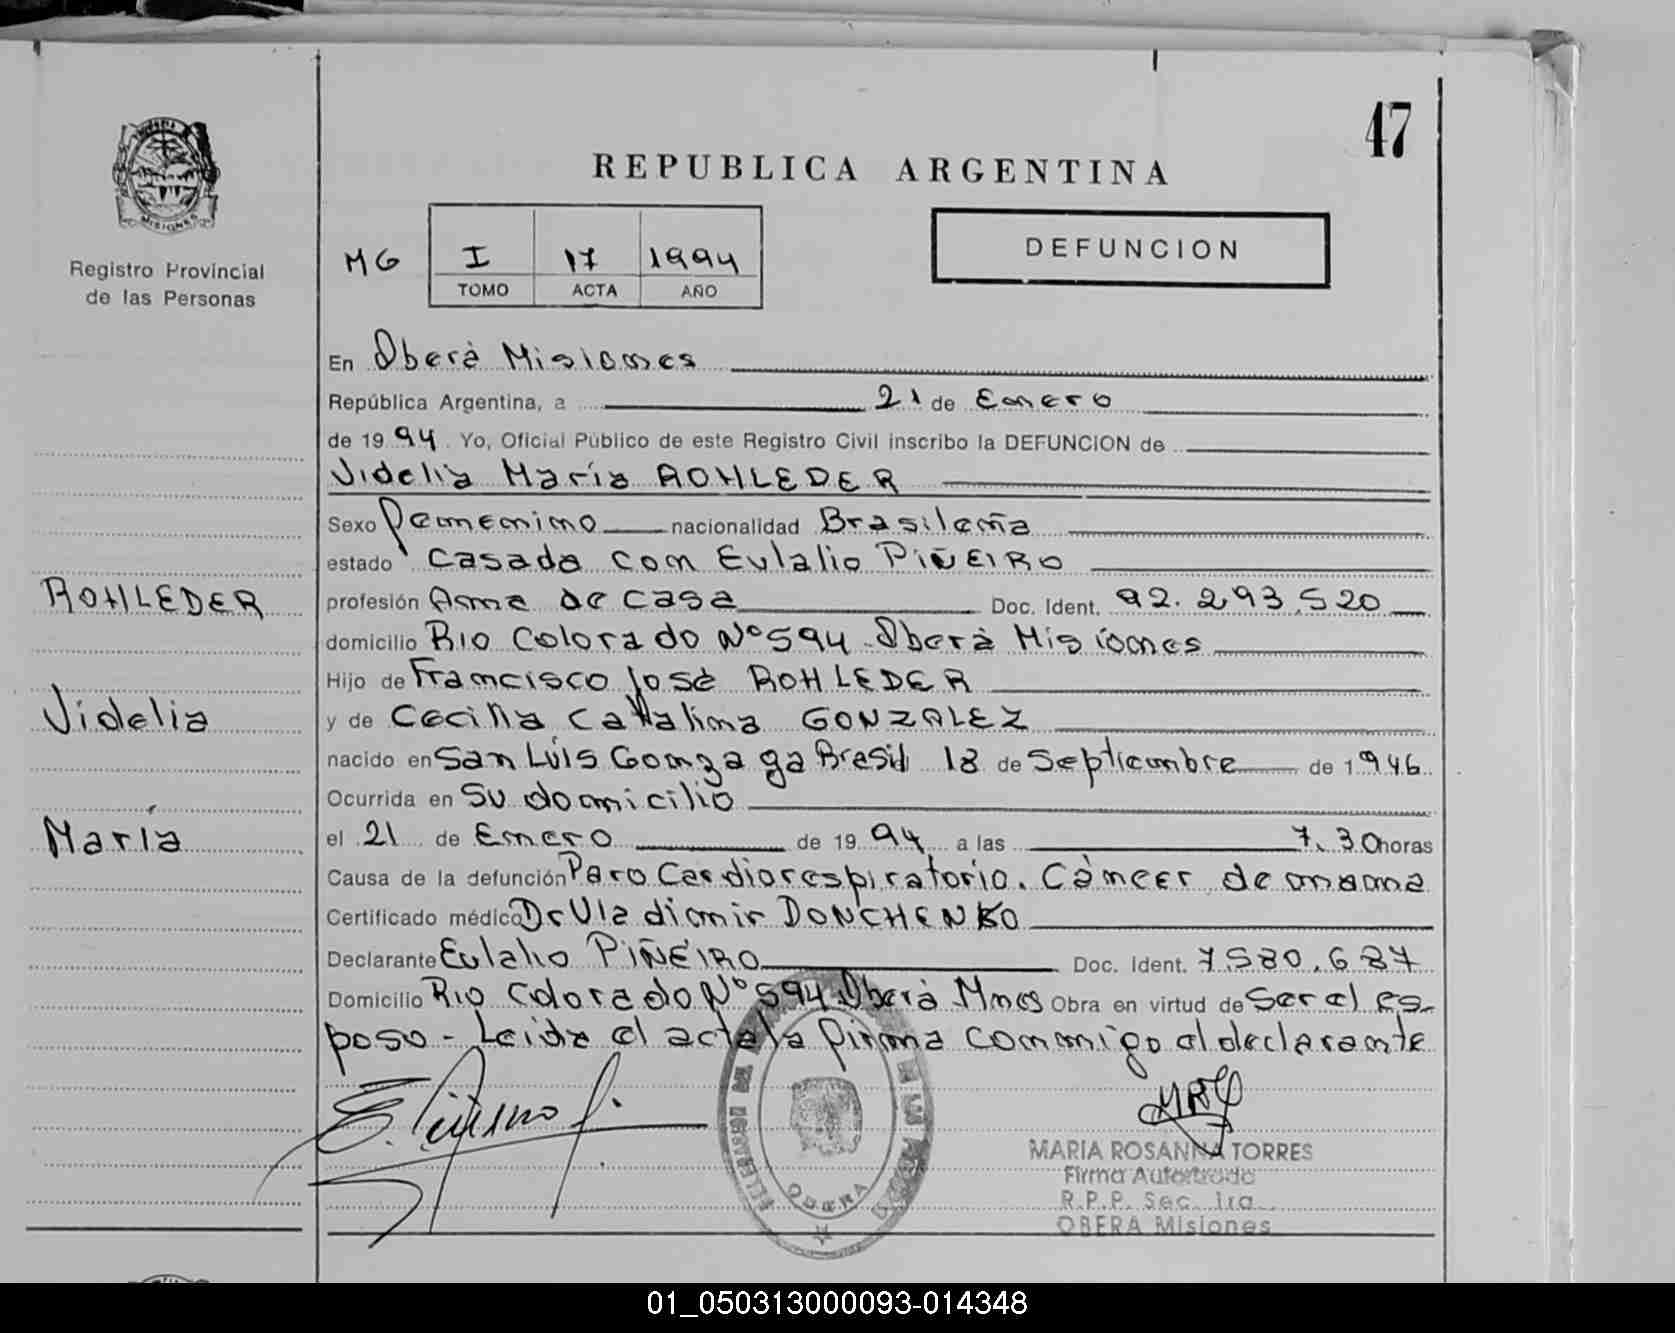 47
REPUBLICA ARGENTINA
MISIONES
Registro Provincial
de las Personas
MG I 17 1994
TOMO ACTA AÑO
DEFUNCION
En Oberá Misiones
República Argentina, a 21 de Enero
de 1994. Yo, Oficial Público de este Registro Civil inscribo la DEFUNCION de
Videlia María ROHLEDER
Sexo Femenino nacionalidad Brasileña
estado Casada con Eulalio PIÑEIRO
ROHLEDER
profesión Ama de casa Doc. Ident. 92.293.520
domicilio Rio Colorado Nº 594 Oberá Misiones
Hijo de Francisco José ROHLEDER
Videlia
y de Cecilia Catalina GONZALEZ
nacido en San Luis Gonzaga Brasil 18 de Septiembre de 1946
Ocurrida en Su domicilio
María
el 21 de Enero de 1994 a las 7.30 horas
Causa de la defunción Paro Cardiorespiratorio. Cáncer de mama
Certificado médico Dr Vladimir DONCHENKO
Declarante Eulalio PIÑEIRO Doc. Ident. 7.580.687
Domicilio Rio Colorado Nº 594 Oberá Mnes Obra en virtud de Ser el es-
poso - Leida el acta la firma conmigo el declarante
OBERA
MARIA ROSANNA TORRES
Firma Autorizada
R.P.P. Sec. 1ra.
OBERA Misiones
01_050313000093-014348